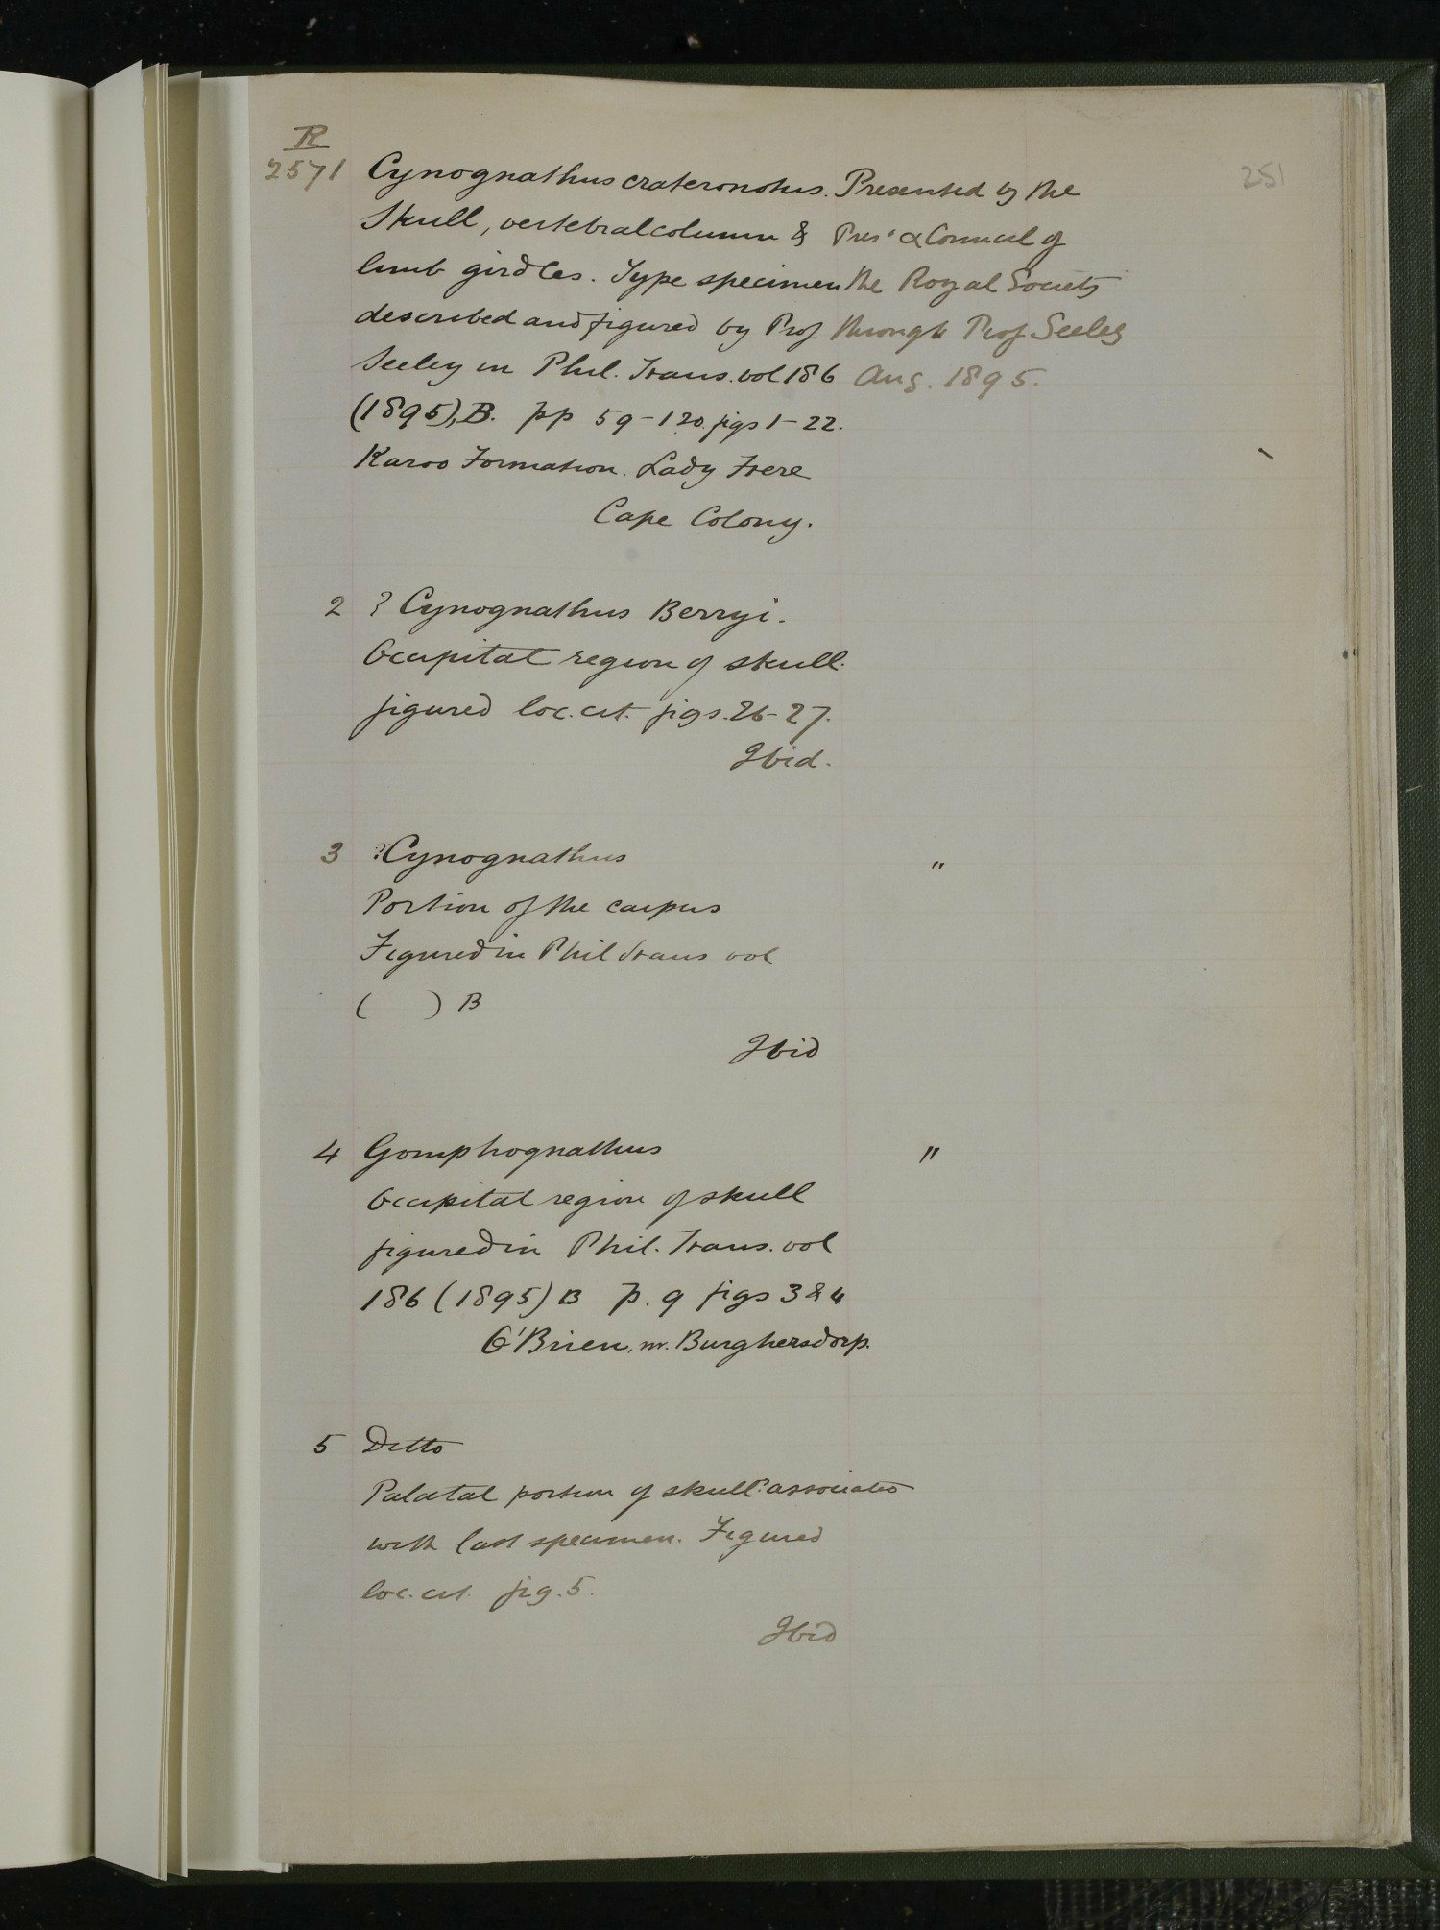 R
251
2571 Cynognathus crateronotus. Presented by the
Skull, vertebral column & Pres' & Council of
limb girdles. Type specimen the Royal Society
described and figured by Prof through Prof Seeley
Seeley in Phil. Trans. vol 186 Aug. 1895.
(1895), B. pp 59-120. figs 1-22.
Karoo Formation. Lady Frere
Cape Colony.
2 ? Cynognathus Berryi.
Occipital region of skull.
figured loc. cit. figs. 26-27.
Ibid.
3 ?Cynognathus "
Portion of the carpus
Figured in Phil Trans vol
( ) B
Ibid
4 Gomphognathus "
Occipital region of skull
figured in Phil. Trans. vol
186 (1895) B p. 9 figs 3 & 4
O'Brien, nr. Burghersdorp.
5 Ditto
Palatal portion of skull associated
with last specimen. Figured
loc. cit. fig. 5.
Ibid